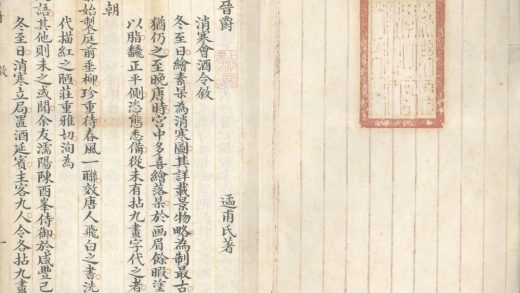 晉爵
甫氏著
消寒會酒令敘
冬至日繪素呆為消寒圖其詳載景物略為制最古
猶仍之至晚唐時宮中多喜繪落呆於画眉餘暇塗
以脂黱正平側恣態悉備從未有拈九畫字代之者
朝
始製庭前垂柳珍重待春風一聯效唐人飛白之書洗
代描紅之陋莊重雅切洵為
語其他則未之或聞余友濡陽陳酉峯侍御於咸豐己
冬至日消寒立局置酒延賓主客九人令各拈九畫
敘
一